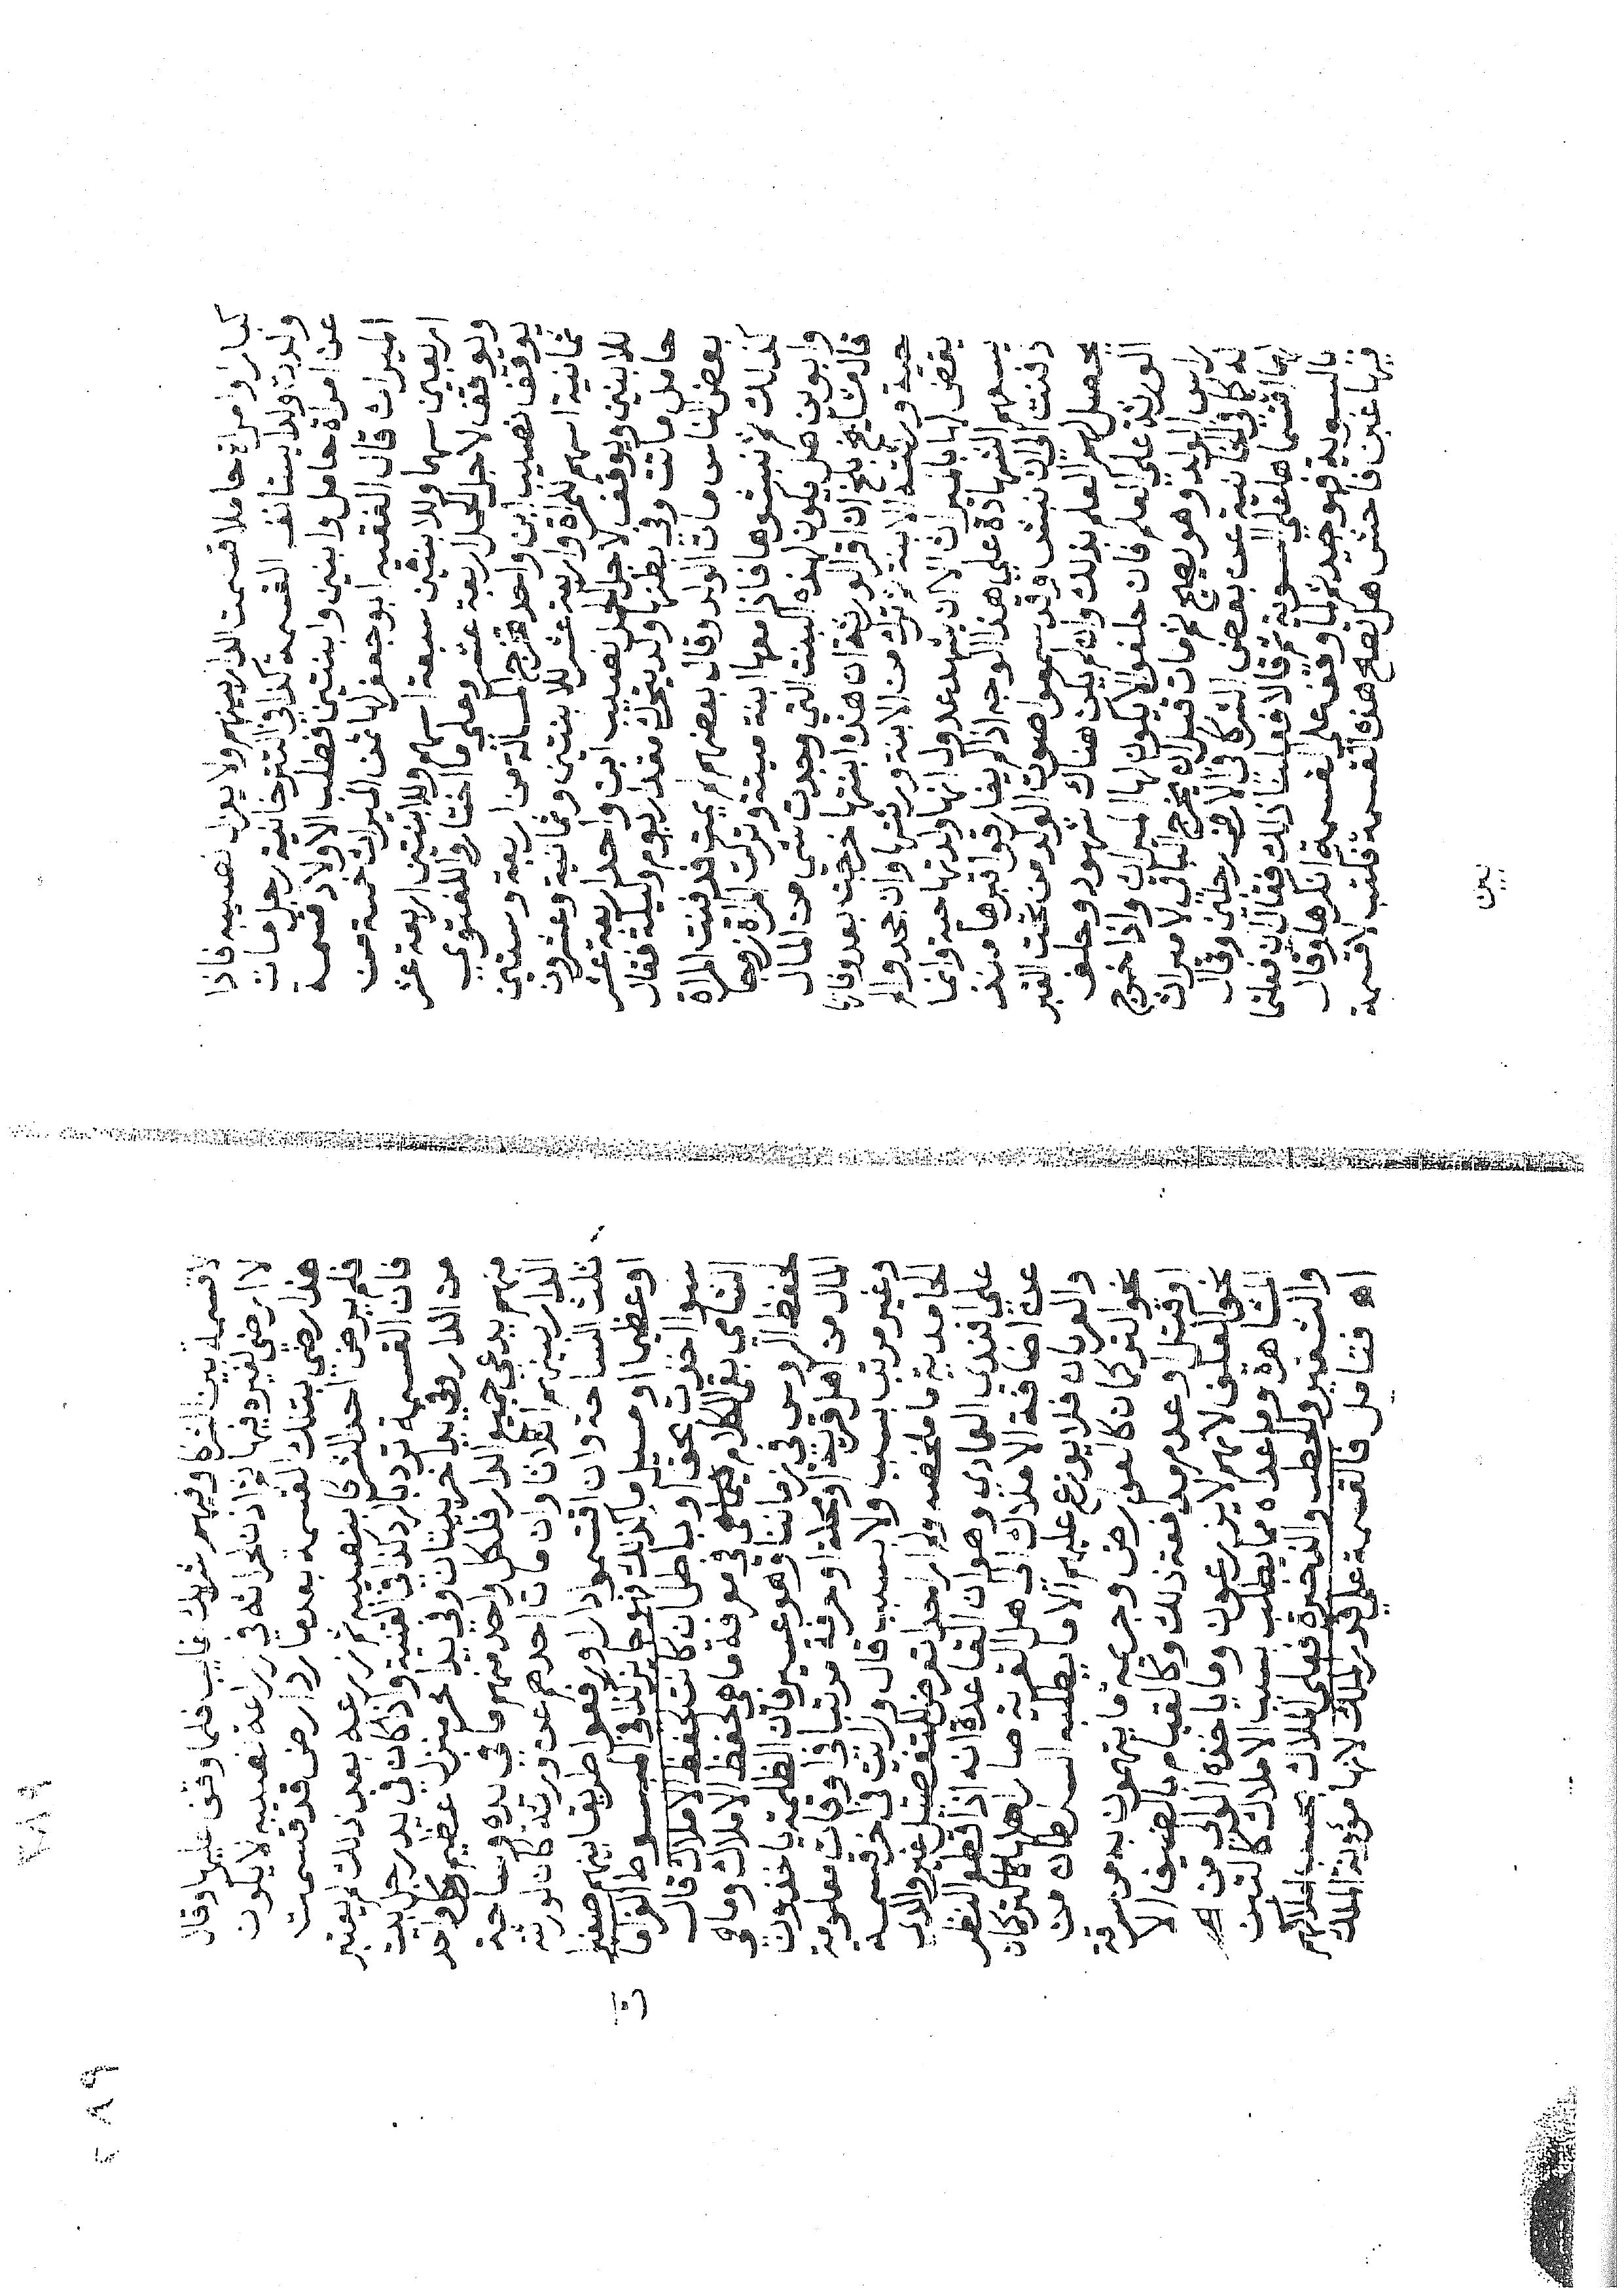 كبارا وامراة حاملا قسمت الدار بينهم ولا يعزل نصيبه فاذا
ولدت ولدا يستانف القسمة كذا في التترخانية رجل مات
عن امراة حامل وابنين وابنتين فطلب الاولاد قسمة
الميراث قال الفقيه ابو جعفر لها ثمن الميراث خمسة من
اربعين سهما وللابنتين سبعة اسهم وللابنين اربعة عشر
ويوقف لاجل الحمل اربعة عشر وعلى ما اختاروا للفتوى
يوقف نصيب ابن واحد فتخرج المسالة من اربعة وستين
ثمانية اسهم للمراة واربعة عشر للابنتين وثمانية وعشرون
للابنين ويوقف لاجل الحمل نصيب ابن واحد اربعة عشر
حامل ماتت وفي بطنها ولد يتحرك مقدار يوم وليلة فقال
بعض الناس مات الولد وقال بعضهم لم يمت فدفنت المراة
كذلك ثم نبشوها فاذا معها ابنة ميتة وتركت المراة زوجا
وابوين هل يكون لهذه البنت التي وجدت شي من المال
قال مشايخ بلخ ان اقر الورثة ان هذه ابنتها خرجت بعد وفاتها
حية ورثته الابنة ثم ترك من الابنة ورثتها وان جحدوا لم
يقض لها بالميراث الا ان يشهد عدول انها ولدتها حية وانما
يسعهم الشهادة على هذا الوجه اذا لم يفارقوا قبرها منذ
دفنت الى ان نبش وقد سمعوا صوت الولد من تحت القبر
يحصل لهم العلم بذلك وان لم يكن هناك شهود وحلف
الورثة على العلم فان حلفوا لا يكون لها الميراث واذا خرج
راس الولد وهو يصيح ثم مات قبل ان يخرج الباقي لا ميراث
له كذا في الخانية عن بعض الشركا في الارض رجلين وقال
لهما اقتسماها على السوية ثم قالا فعلنا ذلك فقال ان فعلتما
بالسوية فهو جيد ثم لما وقف على القسمة انكرها وقال
فيها غبن فاحش هل تصح هذه القسمة فكتب لا قسمة
بين
لا قسمة بين الشركا وفيهم شريك غايب فلما وقف عليها وقال
لا ارضى لغبن فيها ثم اذن لحراثه في زراعة نصيبه لا يكون
هذا رضى بتلك القسمة بعد ما رد ارض قد قسمت
فلم يرض احد الشركا بنصيبه ثم زرعه بعد ذلك لم يعتبر
فان القسمة ترد بالرد كذا في القنية واذا كان في يد رجل بيت
من الدار وفي يد اخر بيتان وفي يد اخر منزل عظيم وكل واحد
منهم يدعي جميع الدار فلكل واحد منهم ما في يده وساحة
الدار بينهم اثلاثا وان مات احدهم عن ورثة كان لورثته
ثلث الساحة وان اقتسموا دارا ورفعوا طريقا بينهم صغيرا
او عظيما او مسيل ما كذلك فهو جايز كذا في المبسوط الغراما
سوا اخذت بحق او باطل ان كانت لحفظ الاملاك قال
الشامي بقي الكلام فيما هي في معرفة ما هي لحفظ الاملاك وما هو
لحفظ الروس في زماننا وهو عسير فان الظلمة ياخذون
المال من اهل قرية او محلة او حرفة مرتبا في اوقات معلومة
وغير مرتب بسبب ولا بسبب قال ورايت في اخر قسمة
الحامدية ما ملخصه ولم ار احدا تعرض لتفصيل غير والدي
علي افندي العمادي وهو ان القاعدة انه اذا قطع النظر
عن اضافة الاملاك الى اهل القرية صار اهلها كالتركمان
والعربان فلا يوزع عليهم الا ما يطلبه السلطان من
نحو التركمان كالعوارض وجريمة ما يتهمون به من سرقة
او قتل وعدم مدافعة ذلك وكالقيام بالضيف لا
نحو العلف لانهم لا يزرعون وما ياخذه الوالي من
المشاهرة وما عداه مما يطلب بسبب الاملاك كالتبن
والشعير والحطب والذخيرة فعلى الملاك بحسب املاكهم
اه فتامل فالقسمة على قدر الملك لانها مؤونة الملك
٢٨٨
٢٨٩